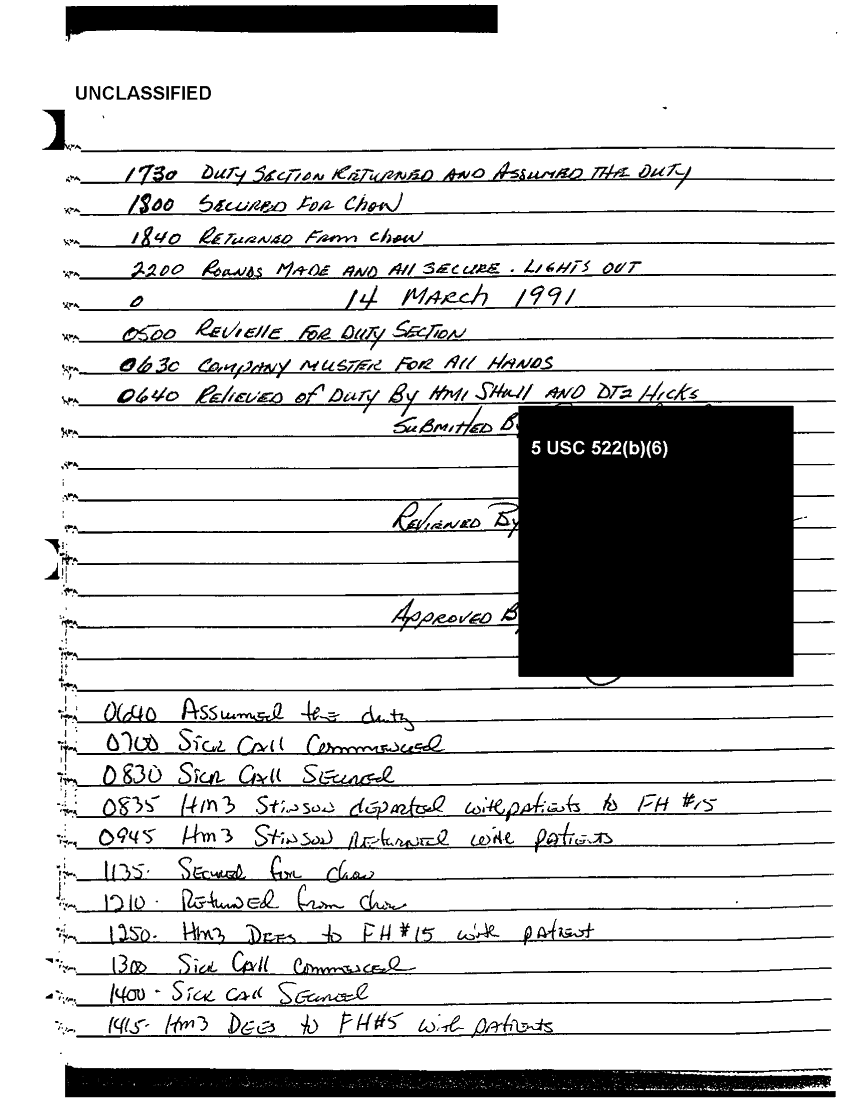 UNCLASSIFIED
1730 DUTY SECTION RETURNED AND ASSUMED THE DUTY
1800 SECURED FOR CHOW
1840 RETURNED FROM CHOW
2200 ROUNDS MADE AND All SECURE. LIGHTS OUT
0 14 MARCH 1991
0500 REVIElle FOR DUTY SECTION
0630 COMPANY MUSTER FOR All HANDS
0640 RELIEVED of DUTY By HM1 SHull AND DT2 HICKS
SUBMITTED B
5 USC 522(b)(6)
REVIEWED By
APPROVED By
0640 Assumed the duty
0700 Sick Call Commenced
0830 Sick Call Secured
0835 Hm3 Stinson departed with patients to FH #15
0945 Hm3 Stinson Returned with patients
1135. Secured for chow
1210. Returned from chow
1250. Hm3 DEES to FH#15 with patient
1300 Sick Call commenced
1400 - Sick Call Secured
1415. Hm3 DEES to FH#5 with patients